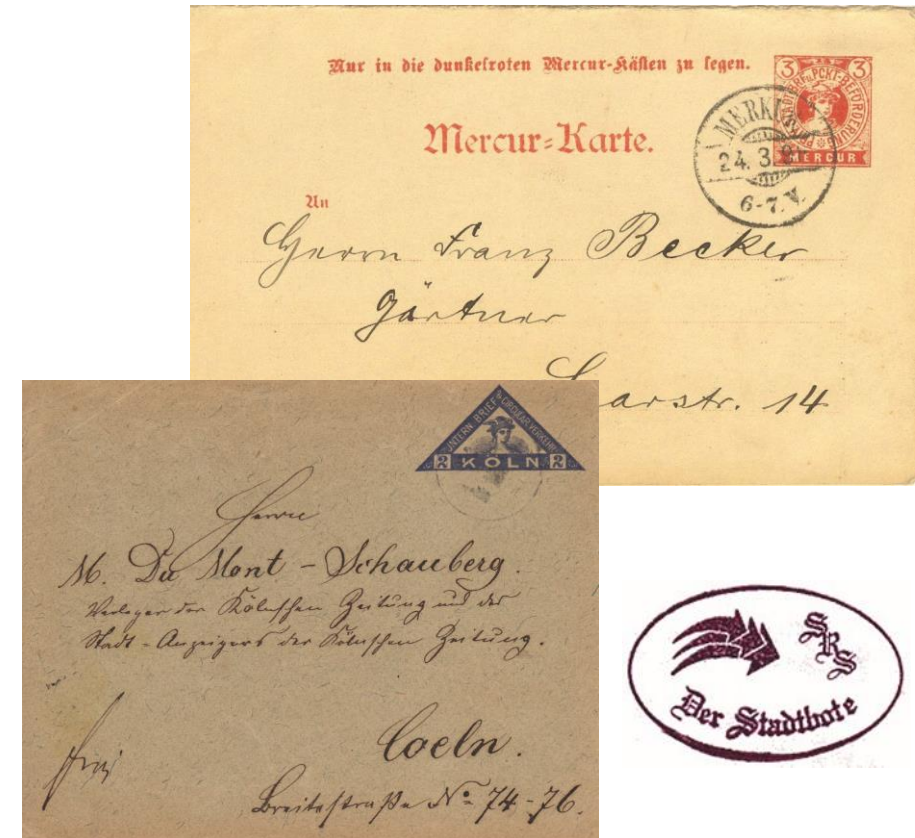 Nur in die dunkelroten Mercur-Kästen zu legen.
3 3
PCKT-BEFÖRDERUNG
MERCUR
Mercur-Karte.
MERKUR
24. 3.
6-7. V.
An
Herrn Franz Becker
Gärtner
arstr. 14
UNTERN. BRIEF & CIRCULAR-VERKEHR
2 KÖLN 2
Herrn
M. Du Mont-Schauberg.
Verleger der Kölnischen Zeitung und des
Stadt-Anzeigers der Kölnischen Zeitung.
frei
Coeln.
Breitestraße No 74-76.
SRS
Der Stadtbote